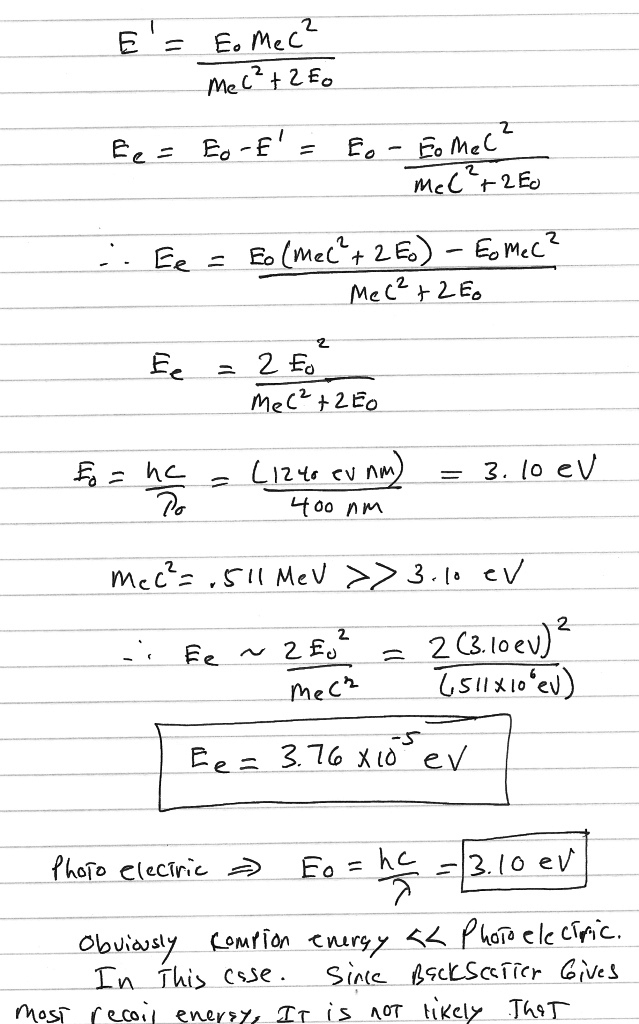 E' = E₀ MeC² / MeC² + 2E₀
Ee = E₀ - E' = E₀ - E₀ MeC² / MeC² + 2E₀
∴ Ee = E₀(MeC² + 2E₀) - E₀MeC² / MeC² + 2E₀
Ee = 2E₀² / MeC² + 2E₀
E₀ = hc / λ₀ = (1240 eV nm) / 400 nm = 3.10 eV
MeC² = .511 MeV >> 3.10 eV
∴ Ee ~ 2E₀² / MeC² = 2(3.10eV)² / (.511x10⁶eV)
Ee = 3.76 x10⁻⁵ eV
Photo electric ⇒ E₀ = hc / λ = 3.10 eV
Obviously Compton energy << Photo electric.
In This case. Since BackScatter Gives
most recoil energy, IT is not likely That